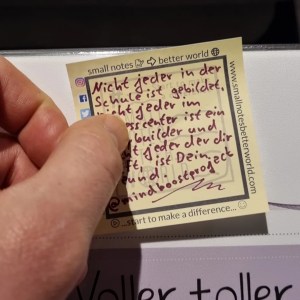 small notes better world
Nicht jeder in der
Schule ist gebildet,
jeder im
center ist ein
builder und
jeder der dir
ist Dein
und.
@mindboostproject
...start to make a difference...
www.smallnotesbetterworld.com
Voller toller